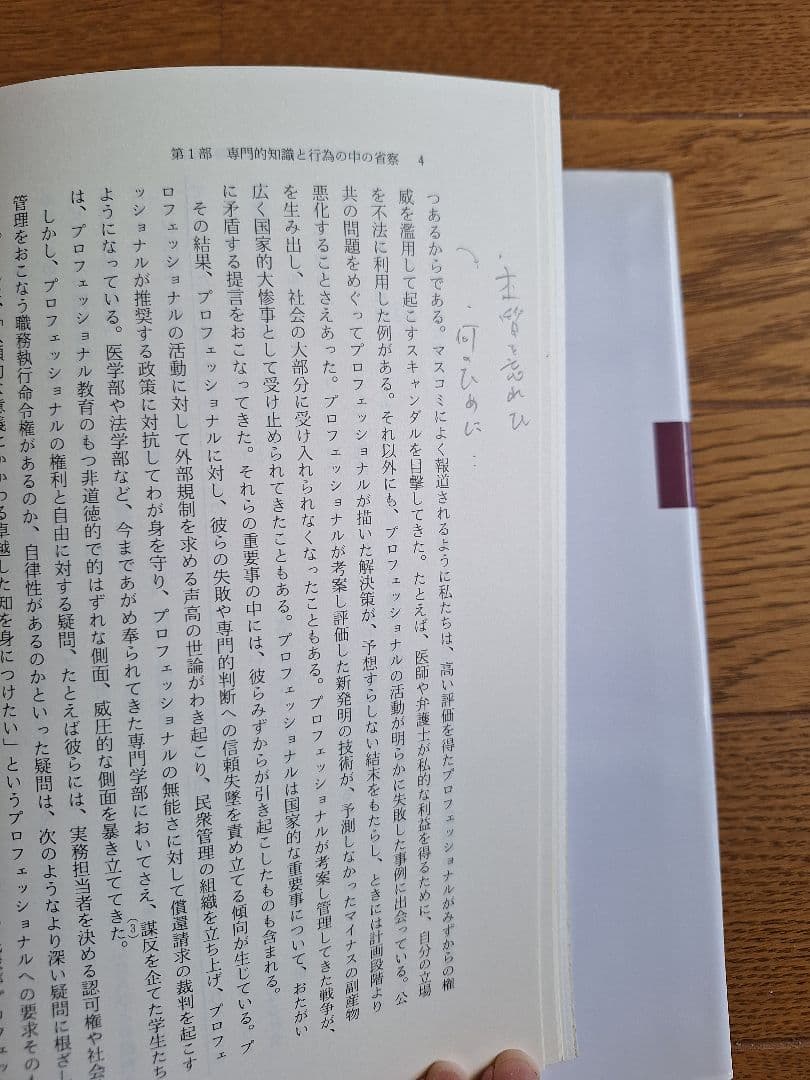 第1部 専門的知識と行為の中の省察 4
・本質を忘れ
・何のために…
つあるからである。マスコミによく報道されるように私たちは、高い評価を得たプロフェッショナルがみずからの権
威を濫用して起こすスキャンダルを目撃してきた。たとえば、医師や弁護士が私的な利益を得るために、自分の立場
を不法に利用した例がある。それ以外にも、プロフェッショナルの活動が明らかに失敗した事例に出会っている。公
共の問題をめぐってプロフェッショナルが描いた解決策が、予想すらしない結末をもたらし、ときには計画段階より
悪化することさえあった。プロフェッショナルが考案し評価した新発明の技術が、予測しなかったマイナスの副産物
を生み出し、社会の大部分に受け入れられなくなったこともある。プロフェッショナルが考案し管理してきた戦争が、
広く国家的大惨事として受け止められてきたこともある。プロフェッショナルは国家的な重要事について、おたがい
に矛盾する提言をおこなってきた。それらの重要事の中には、彼らみずからが引き起こしたものも含まれる。
その結果、プロフェッショナルに対し、彼らの失敗や専門的判断への信頼失墜を責め立てる傾向が生じている。プ
ロフェッショナルの活動に対して外部規制を求める声高の世論がわき起こり、民衆管理の組織を立ち上げ、プロフェ
ッショナルが推奨する政策に対抗してわが身を守り、プロフェッショナルの無能さに対して償還請求の裁判を起こす
ようになっている。医学部や法学部など、今まであがめ奉られてきた専門学部においてさえ、謀反を企てた学生たち
は、プロフェッショナル教育のもつ非道徳的で的はずれな側面、威圧的な側面を暴き立ててきた。(3)
しかし、プロフェッショナルの権利と自由に対する疑問、たとえば彼らには、実務担当者を決める認可権や社会
管理をおこなう職務執行命令権があるのか、自律性があるのかといった疑問は、次のようなより深い疑問に根ざし
かわる卓越した知を身につけたい」というプロフェッショナルへの要求その